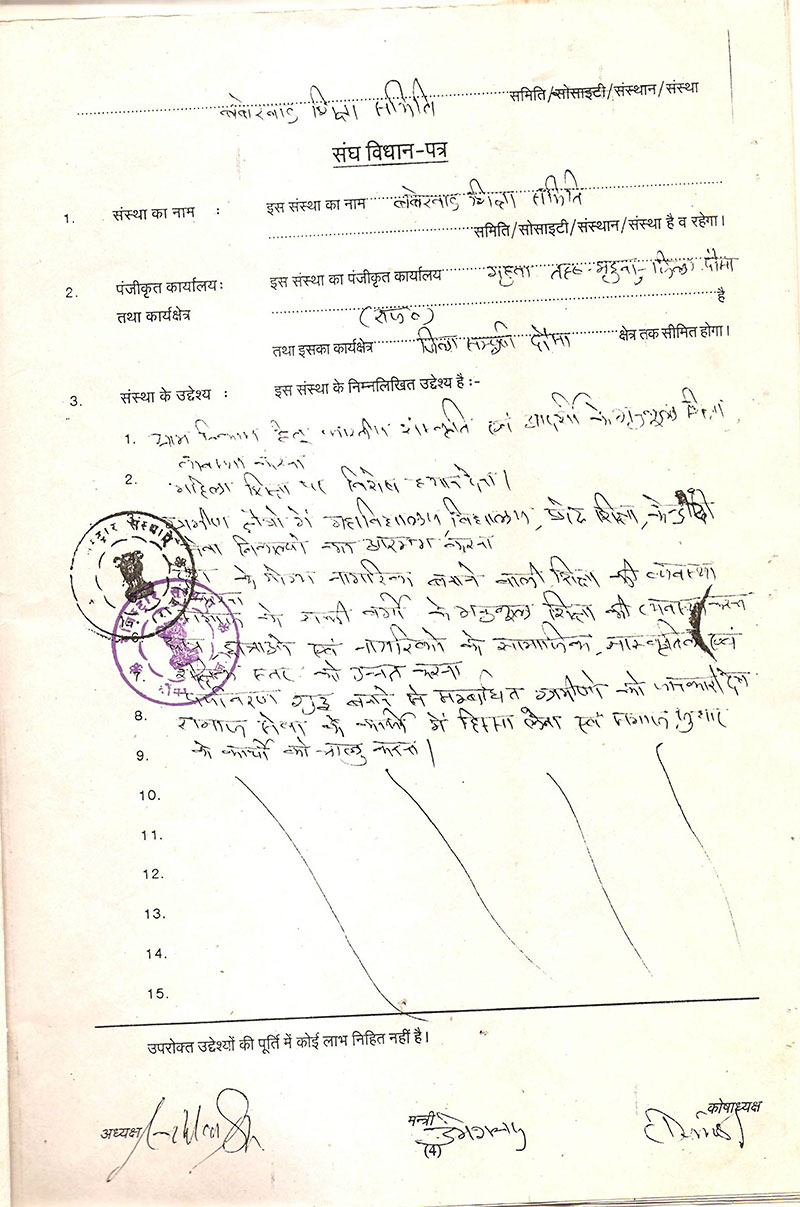 शिक्षा समिति समिति/सोसाइटी/संस्थान/संस्था
संघ विधान-पत्र
1. संस्था का नाम : इस संस्था का नाम शिक्षा समिति
समिति/सोसाइटी/संस्थान/संस्था है व रहेगा।
2. पंजीकृत कार्यालयः इस संस्था का पंजीकृत कार्यालय जिला दौसा
तथा कार्यक्षेत्र (राज०) है
तथा इसका कार्यक्षेत्र जिला सम्पूर्ण दौसा क्षेत्र तक सीमित होगा।
3. संस्था के उद्देश्य : इस संस्था के निम्नलिखित उद्देश्य है :-
1. हेतु भारतीय संस्कृति एवं आदर्शो के अनुकूल शिक्षा
व्यवस्था करना
2. महिला शिक्षा पर विशेष ध्यान देना।
ग्रामीण क्षेत्रो में महाविद्यालय विद्यालय, प्रोढ शिक्षा, केन्द्रो
का आरम्भ करना
के योग्य नागरिक बनाने वाली शिक्षा की व्यवस्था
करना
के सभी वर्गो के अनुकूल शिक्षा की व्यवस्था करना
छात्राओ एवं नागरिको के सामाजिक, सांस्कृतिक एवं
7. स्तर को उन्नत करना
शुद्ध बनाने से सम्बंधित ग्रामीणो को जानकारी देना
8. समाज सेवा के कार्यो में हिस्सा लेना एवं समाज सुधार
9. के कार्यो को चालू करना।
10.
11.
12.
13.
14.
15.
उपरोक्त उद्देश्यों की पूर्ति में कोई लाभ निहित नहीं है।
अध्यक्ष मन्त्री कोषाध्यक्ष
(4)